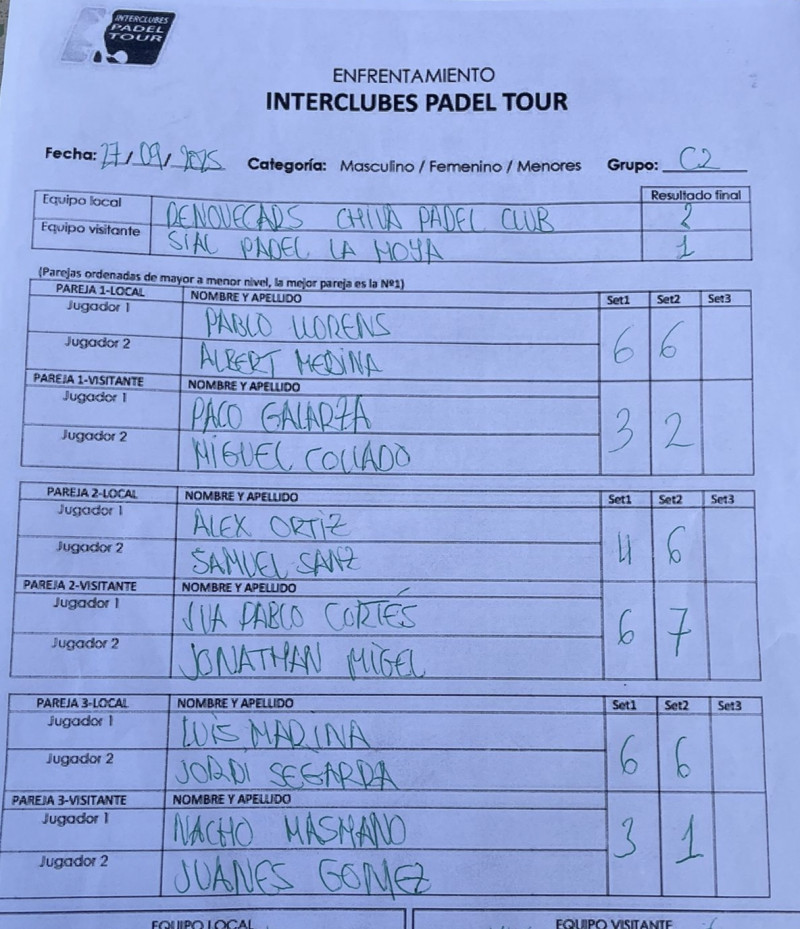 INTERCLUBES
PADEL
TOUR
ENFRENTAMIENTO
INTERCLUBES PADEL TOUR
Fecha: 27/09/2025 Categoría: Masculino / Femenino / Menores Grupo: C2
Resultado final
Equipo local RENOVECARS CHIVA PADEL CLUB 2
Equipo visitante SIAL PADEL LA HOYA 1
(Parejas ordenadas de mayor a menor nivel, la mejor pareja es la Nº1)
PAREJA 1-LOCAL NOMBRE Y APELLIDO Set1 Set2 Set3
Jugador 1 PABLO LLORENS
Jugador 2 ALBERT MEDINA 6 6
PAREJA 1-VISITANTE NOMBRE Y APELLIDO
Jugador 1 PACO GALARZA
Jugador 2 MIGUEL COLLADO 3 2
PAREJA 2-LOCAL NOMBRE Y APELLIDO Set1 Set2 Set3
Jugador 1 ALEX ORTIZ
Jugador 2 SAMUEL SANZ 4 6
PAREJA 2-VISITANTE NOMBRE Y APELLIDO
Jugador 1 PABLO CORTÉS
Jugador 2 JONATHAN MIGEL 6 7
PAREJA 3-LOCAL NOMBRE Y APELLIDO Set1 Set2 Set3
Jugador 1 LUIS MARINA
Jugador 2 JORDI SEGARRA 6 6
PAREJA 3-VISITANTE NOMBRE Y APELLIDO
Jugador 1 NACHO MASMANO
Jugador 2 JUANES GOMEZ 3 1
EQUIPO LOCAL EQUIPO VISITANTE